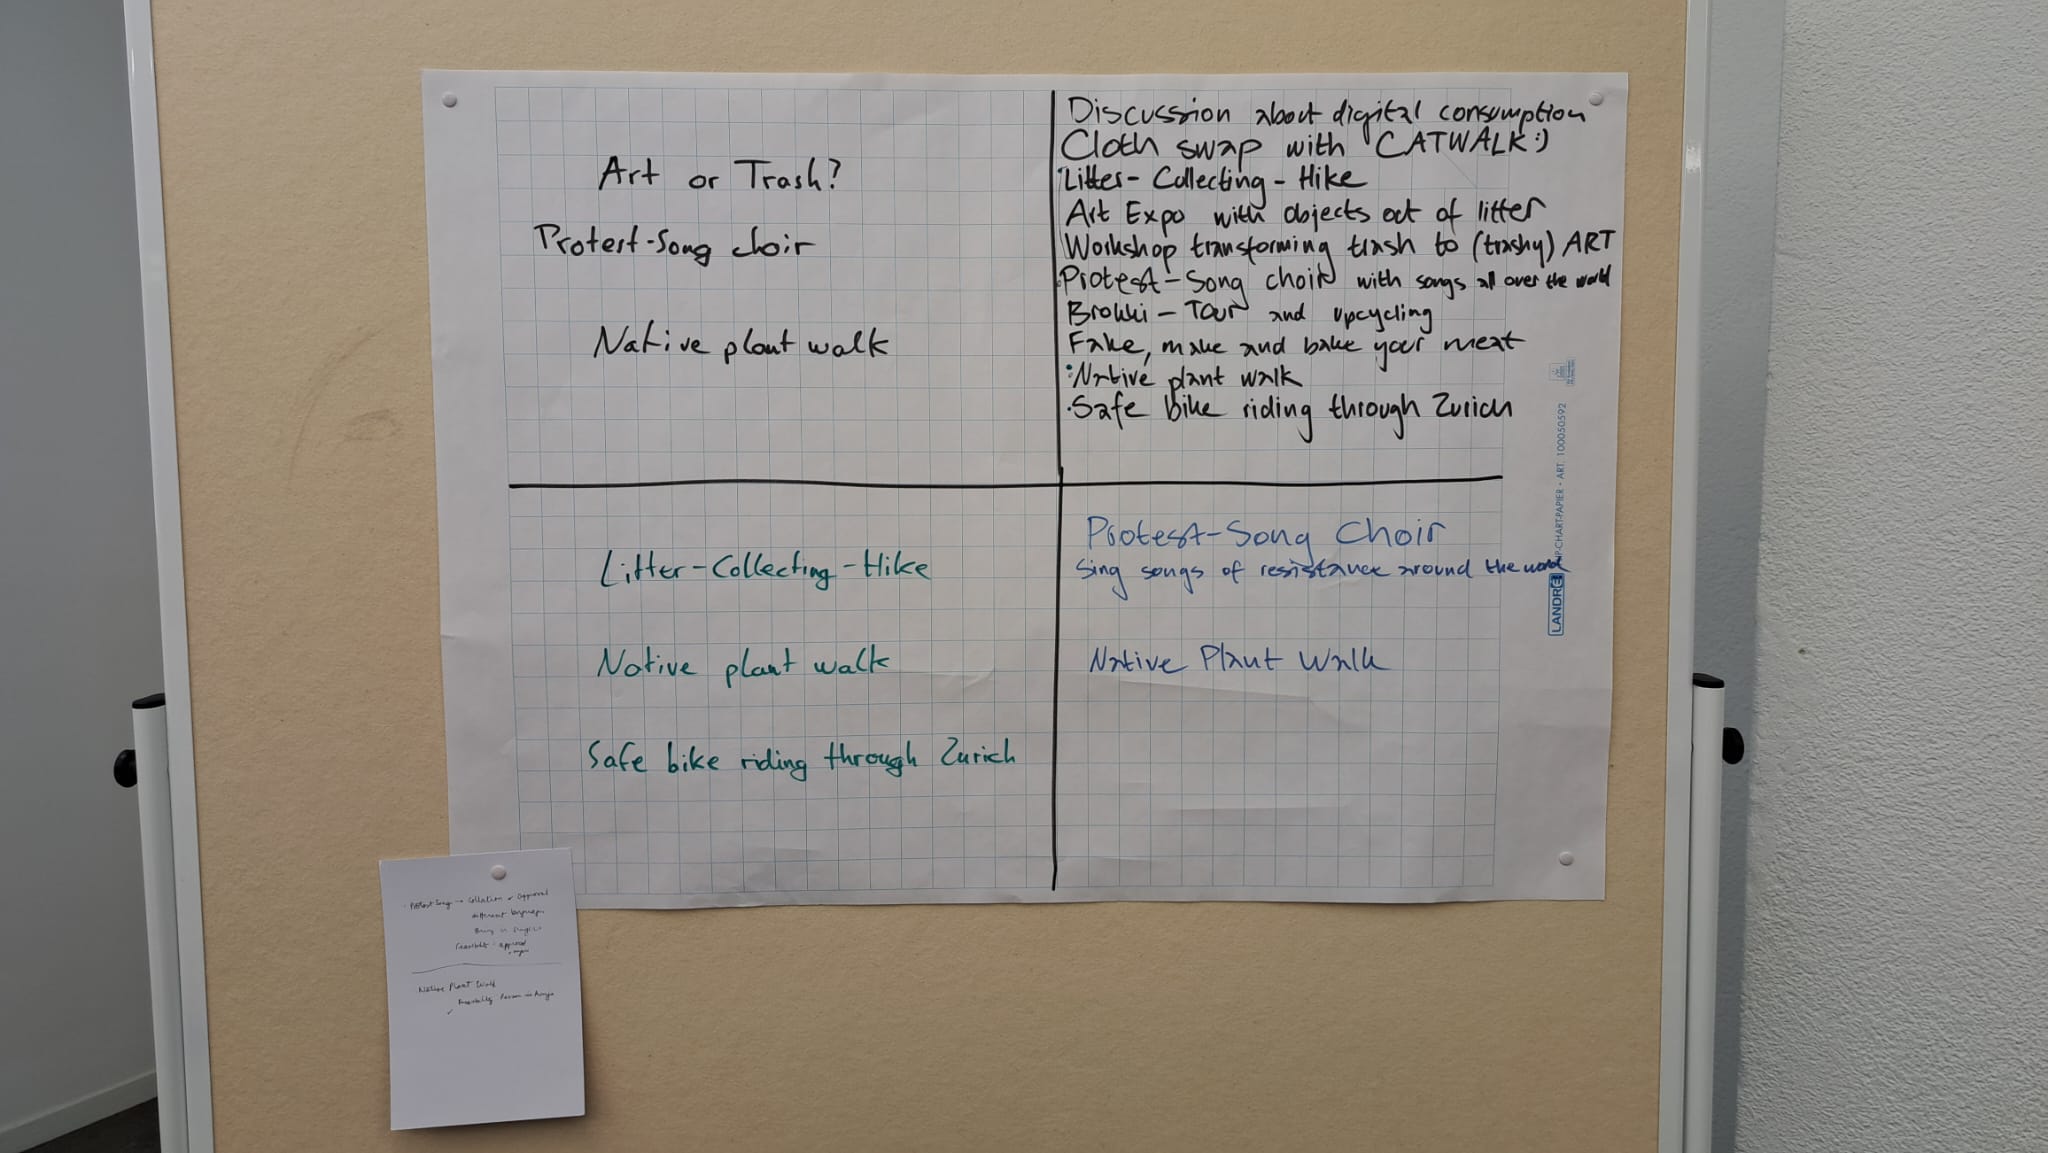 Art or Trash?
Protest-Song choir
Native plant walk
Discussion about digital consumption
Cloth swap with CATWALK:)
Litter-Collecting-Hike
Art Expo with objects out of litter
Workshop transforming trash to (trashy) ART
Protest-Song choir with songs all over the world
Brokki-Tour and upcycling
Fake, make and bake your meat
Native plant walk
Safe bike riding through Zurich
Litter-Collecting-Hike
Native plant walk
Safe bike riding through Zurich
Protest-Song Choir
Sing songs of resistance around the world
Native Plant Walk
LANDRÉ FLIPCHART-PAPIER - ART. 100050592
Protest Song
different
approval
Native Plant Walk